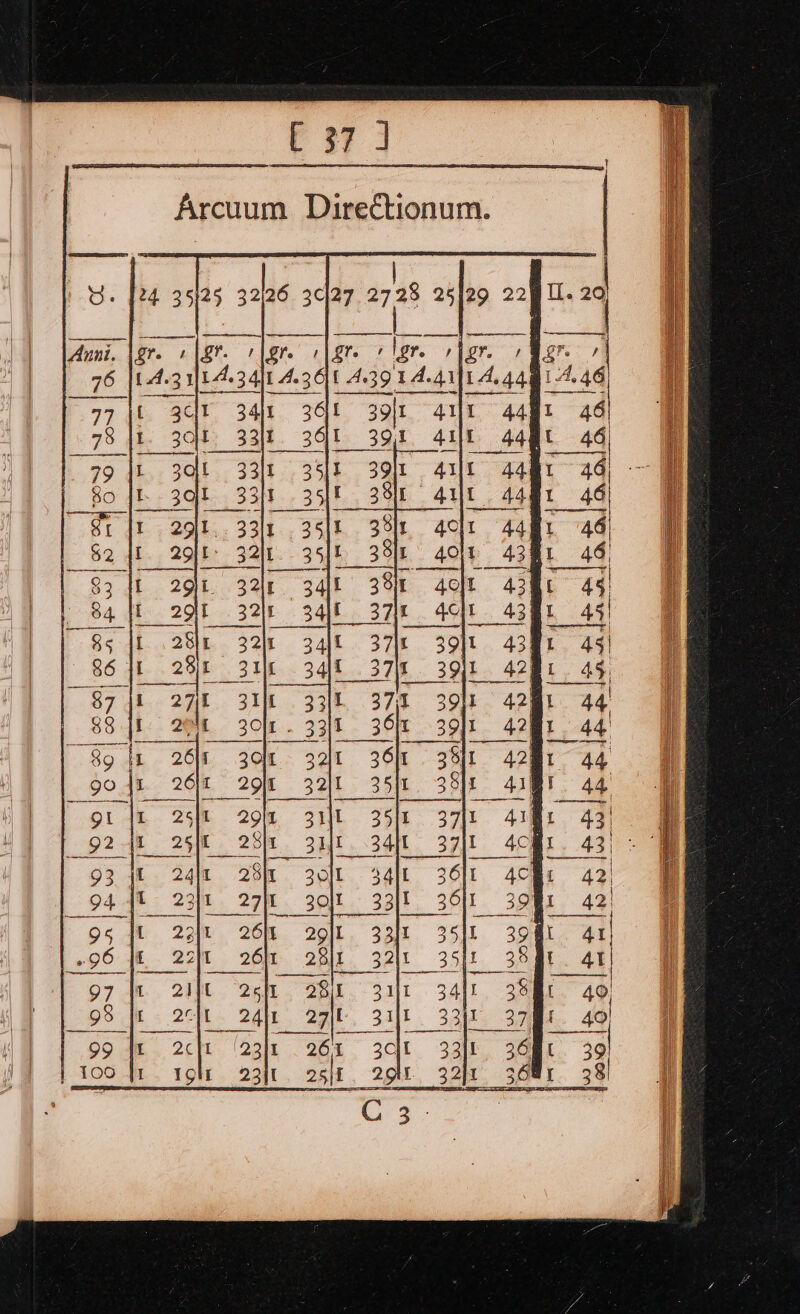 [ 37 ]
Arcuum Directionum.
♉. 24 35 25 32 26 30 27 27 28 25 29 22 II. 20
Anni. gr. ′ gr. ′ gr. ′ gr. ′ gr. ′ gr. ′ gr. ′
76 1 A.31 1 A.34 1 A.36 1 A.39 1 A.41 1 A.44 1 A.46
77 1 30 1 34 1 36 1 39 1 41 1 44 1 46
78 1 30 1 33 1 36 1 39 1 41 1 44 1 46
79 1 30 1 33 1 35 1 39 1 41 1 44 1 46
80 1 30 1 33 1 35 1 38 1 41 1 44 1 46
81 1 29 1 33 1 35 1 38 1 40 1 44 1 46
82 1 29 1 32 1 35 1 38 1 40 1 43 1 46
83 1 29 1 32 1 34 1 38 1 40 1 43 1 45
84 1 29 1 32 1 34 1 37 1 40 1 43 1 45
85 1 28 1 32 1 34 1 37 1 39 1 43 1 45
86 1 28 1 31 1 34 1 37 1 39 1 42 1 45
87 1 27 1 31 1 33 1 37 1 39 1 42 1 44
88 1 1 30 1 33 1 36 1 39 1 42 1 44
89 1 26 1 30 1 32 1 36 1 38 1 42 1 44
90 1 26 1 29 1 32 1 35 1 38 1 41 1 44
91 1 25 1 29 1 31 1 35 1 37 1 41 1 43
92 1 25 1 28 1 31 1 34 1 37 1 40 1 43
93 1 24 1 28 1 30 1 34 1 36 1 40 1 42
94 1 23 1 27 1 30 1 33 1 36 1 39 1 42
95 1 22 1 26 1 29 1 33 1 35 1 39 1 41
96 1 22 1 26 1 28 1 32 1 35 1 38 1 41
97 1 21 1 25 1 28 1 31 1 34 1 38 1 40
98 1 20 1 24 1 27 1 31 1 33 1 37 1 40
99 1 20 1 23 1 26 1 30 1 33 1 36 1 39
100 1 19 1 23 1 25 1 29 1 32 1 36 1 38
C 3